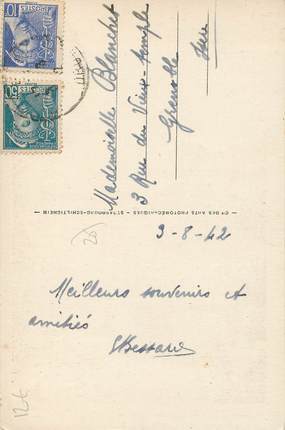 Mademoiselle Blanchet
3 Rue du Vieux-temple
Grenoble
Isère
Cie DES ARTS PHOTOMÉCANIQUES - STRASBOURG-SCHILTIGHEIM
3-8-42
Meilleurs souvenirs et
amitiés
POSTES
10
50
12€